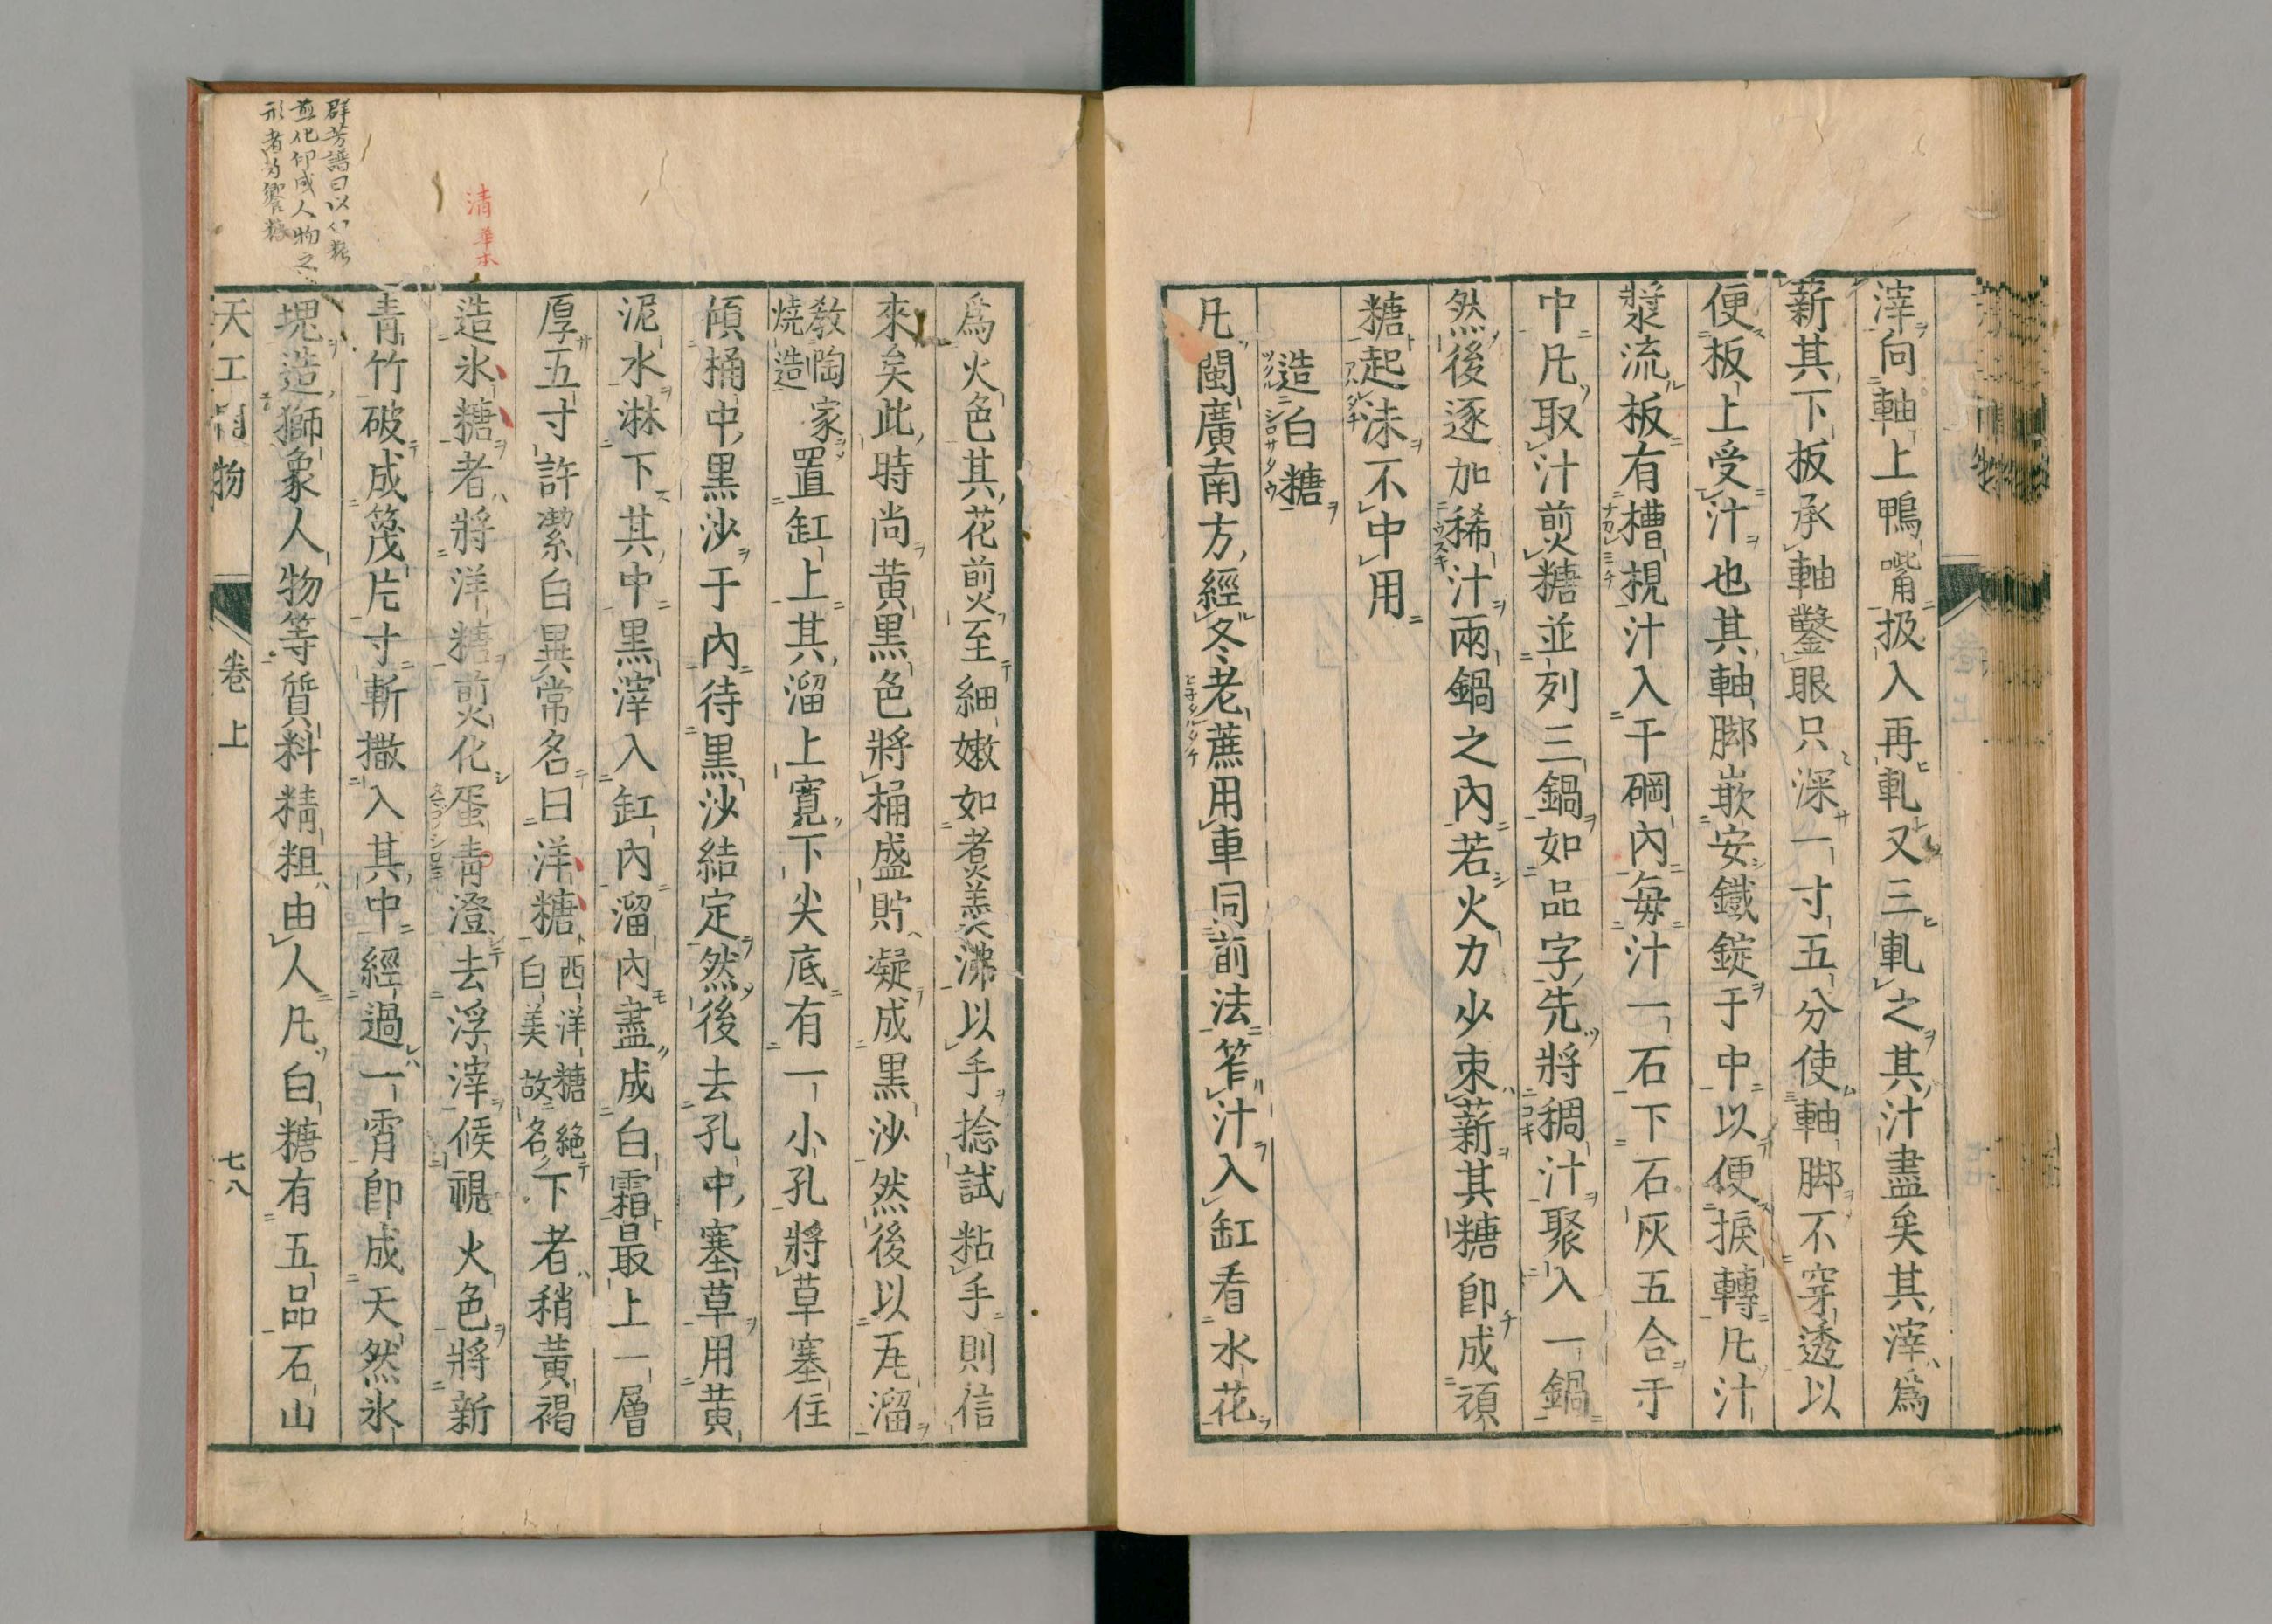 滓向軸上鴨嘴扱入再軋又三軋之其汁盡矣其滓爲
薪其下扳承軸鑿眼只深一寸五分使軸脚不穿透以
便板上受汁也其軸脚嵌安鐵錠于中以便捩轉凡汁
漿流板有槽梘汁入于碙內毎汁一石下石灰五合于
中凡取汁煎糖並列三鍋如品字先將稠汁聚入一鍋
然後逐加稀汁兩鍋之內若火力少束薪其糖卽成頑
糖起沫不中用
造白糖
凡閩廣南方經冬老蔗用車同前法笮汁入缸看水花
爲火色其花煎至細嫩如煑羹沸以手捻試粘手則信
來矣此時尚黄黒色將桶盛貯凝成黒沙然後以瓦溜
教陶家
燒造
置缸上其溜上寛下尖底有一小孔將草塞住
傾桶中黒沙于內待黒沙結定然後去孔中塞草用黄
泥水淋下其中黒滓入缸內溜內盡成白霜最上一層
厚五寸許潔白異常名曰洋糖
西洋糖絶
白美故名
下者稍黄褐
造氷糖者將洋糖煎化蛋靑澄去浮滓候視火色將新
靑竹破成篾片寸斬撒入其中經過一霄卽成天然氷
塊造獅象人物等質料精粗由人凡白糖有五品石山
天工開物 卷上 七八
清華本
群芳譜曰以白糖
煎化印成人物之
形者爲饗糖